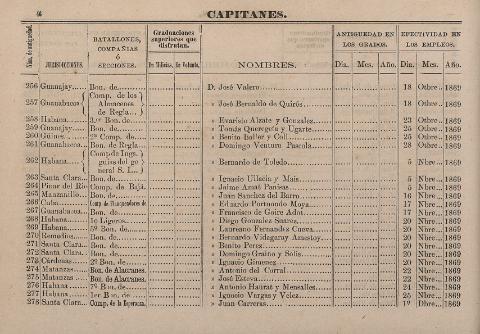 CAPITANES.
JURISDICCIONES.
BATALLONES, COMPAÑIAS ó SECCIONES.
Graduaciones superiores que disfrutan.
De Milicias. De Volunta.
NOMBRES.
ANTIGUEDAD EN LOS GRADOS.
Dia. Mes. Año.
EFECTIVIDAD EN LOS EMPLEOS.
Dia. Mes. Año.
256 Guanajay...... Bon. de... D. José Valero 18 Otbre.. 1869
257 Guanabacoa Comp. de los Almacenes de Regla... » José Bernaldo de Quirós 18 Otbre.. 1869
258 Habana 3.er Bon. de » Evaristo Alzate y Gonzalez 23 Otbre.. 1869
259 Guanajay Bon. de » Tomás Queregeta y Ugarte 25 Otbre.. 1869
260 Güines 2ª Comp. de » Benito Baller y Coll 25 Otbre.. 1869
261 Guanabacoa Bon. de Regla » Domingo Ventura Pascola 28 Otbre.. 1869
262 Habana Comp de Inge. guias del general S. L... » Bernardo de Toledo 5 Nbre... 1869
263 Santa Clara Bon. de » Ignacio Ullacia y Mais 5 Nbre... 1869
264 Pinar del Rio Comp. de Baja » Jaime Amat 5 Nbre... 1869
265 Manzanillo Bon. de » Juan Sanchez del Barro 16 Nbre... 1869
266 Cuba Comp de Blanqueadores de » Eduardo Portuondo Moya 17 Nbre... 1869
267 Guanabacoa Bon. de » Francisco de Goire Adot 17 Nbre... 1869
268 Habana 1º Ligeros » Diego Gonzalez Suarez 20 Nbre... 1869
269 Habana 5º Bon. de » Laureano Fernandez Cueva 20 Nbre... 1869
270 Remedios Bon. de » Bernardo Videgaray Amestoy 20 Nbre... 1869
271 Santa Clara Bon. de » Benito Perez 20 Nbre... 1869
272 Santa Clara Bon. de » Domingo Graino y Solis 20 Nbre... 1869
273 Cárdenas 2º Bon. de » Ignacio Gimenez 20 Nbre... 1869
274 Matanzas Bon. de Alacranes » Antonio del Corral 22 Nbre... 1869
275 Matanzas Bon. de Alacranes » José Esteva 22 Nbre... 1869
276 Habana 7º Bon. de » Antonio Haurat y Menzalles 24 Nbre... 1869
277 Habana 1er Bon. de » Ignacio Vargas y Velez 25 Nbre... 1869
278 Santa Clara Comp. de la Esperanza » Juan Carreras 1º Dbre... 1869